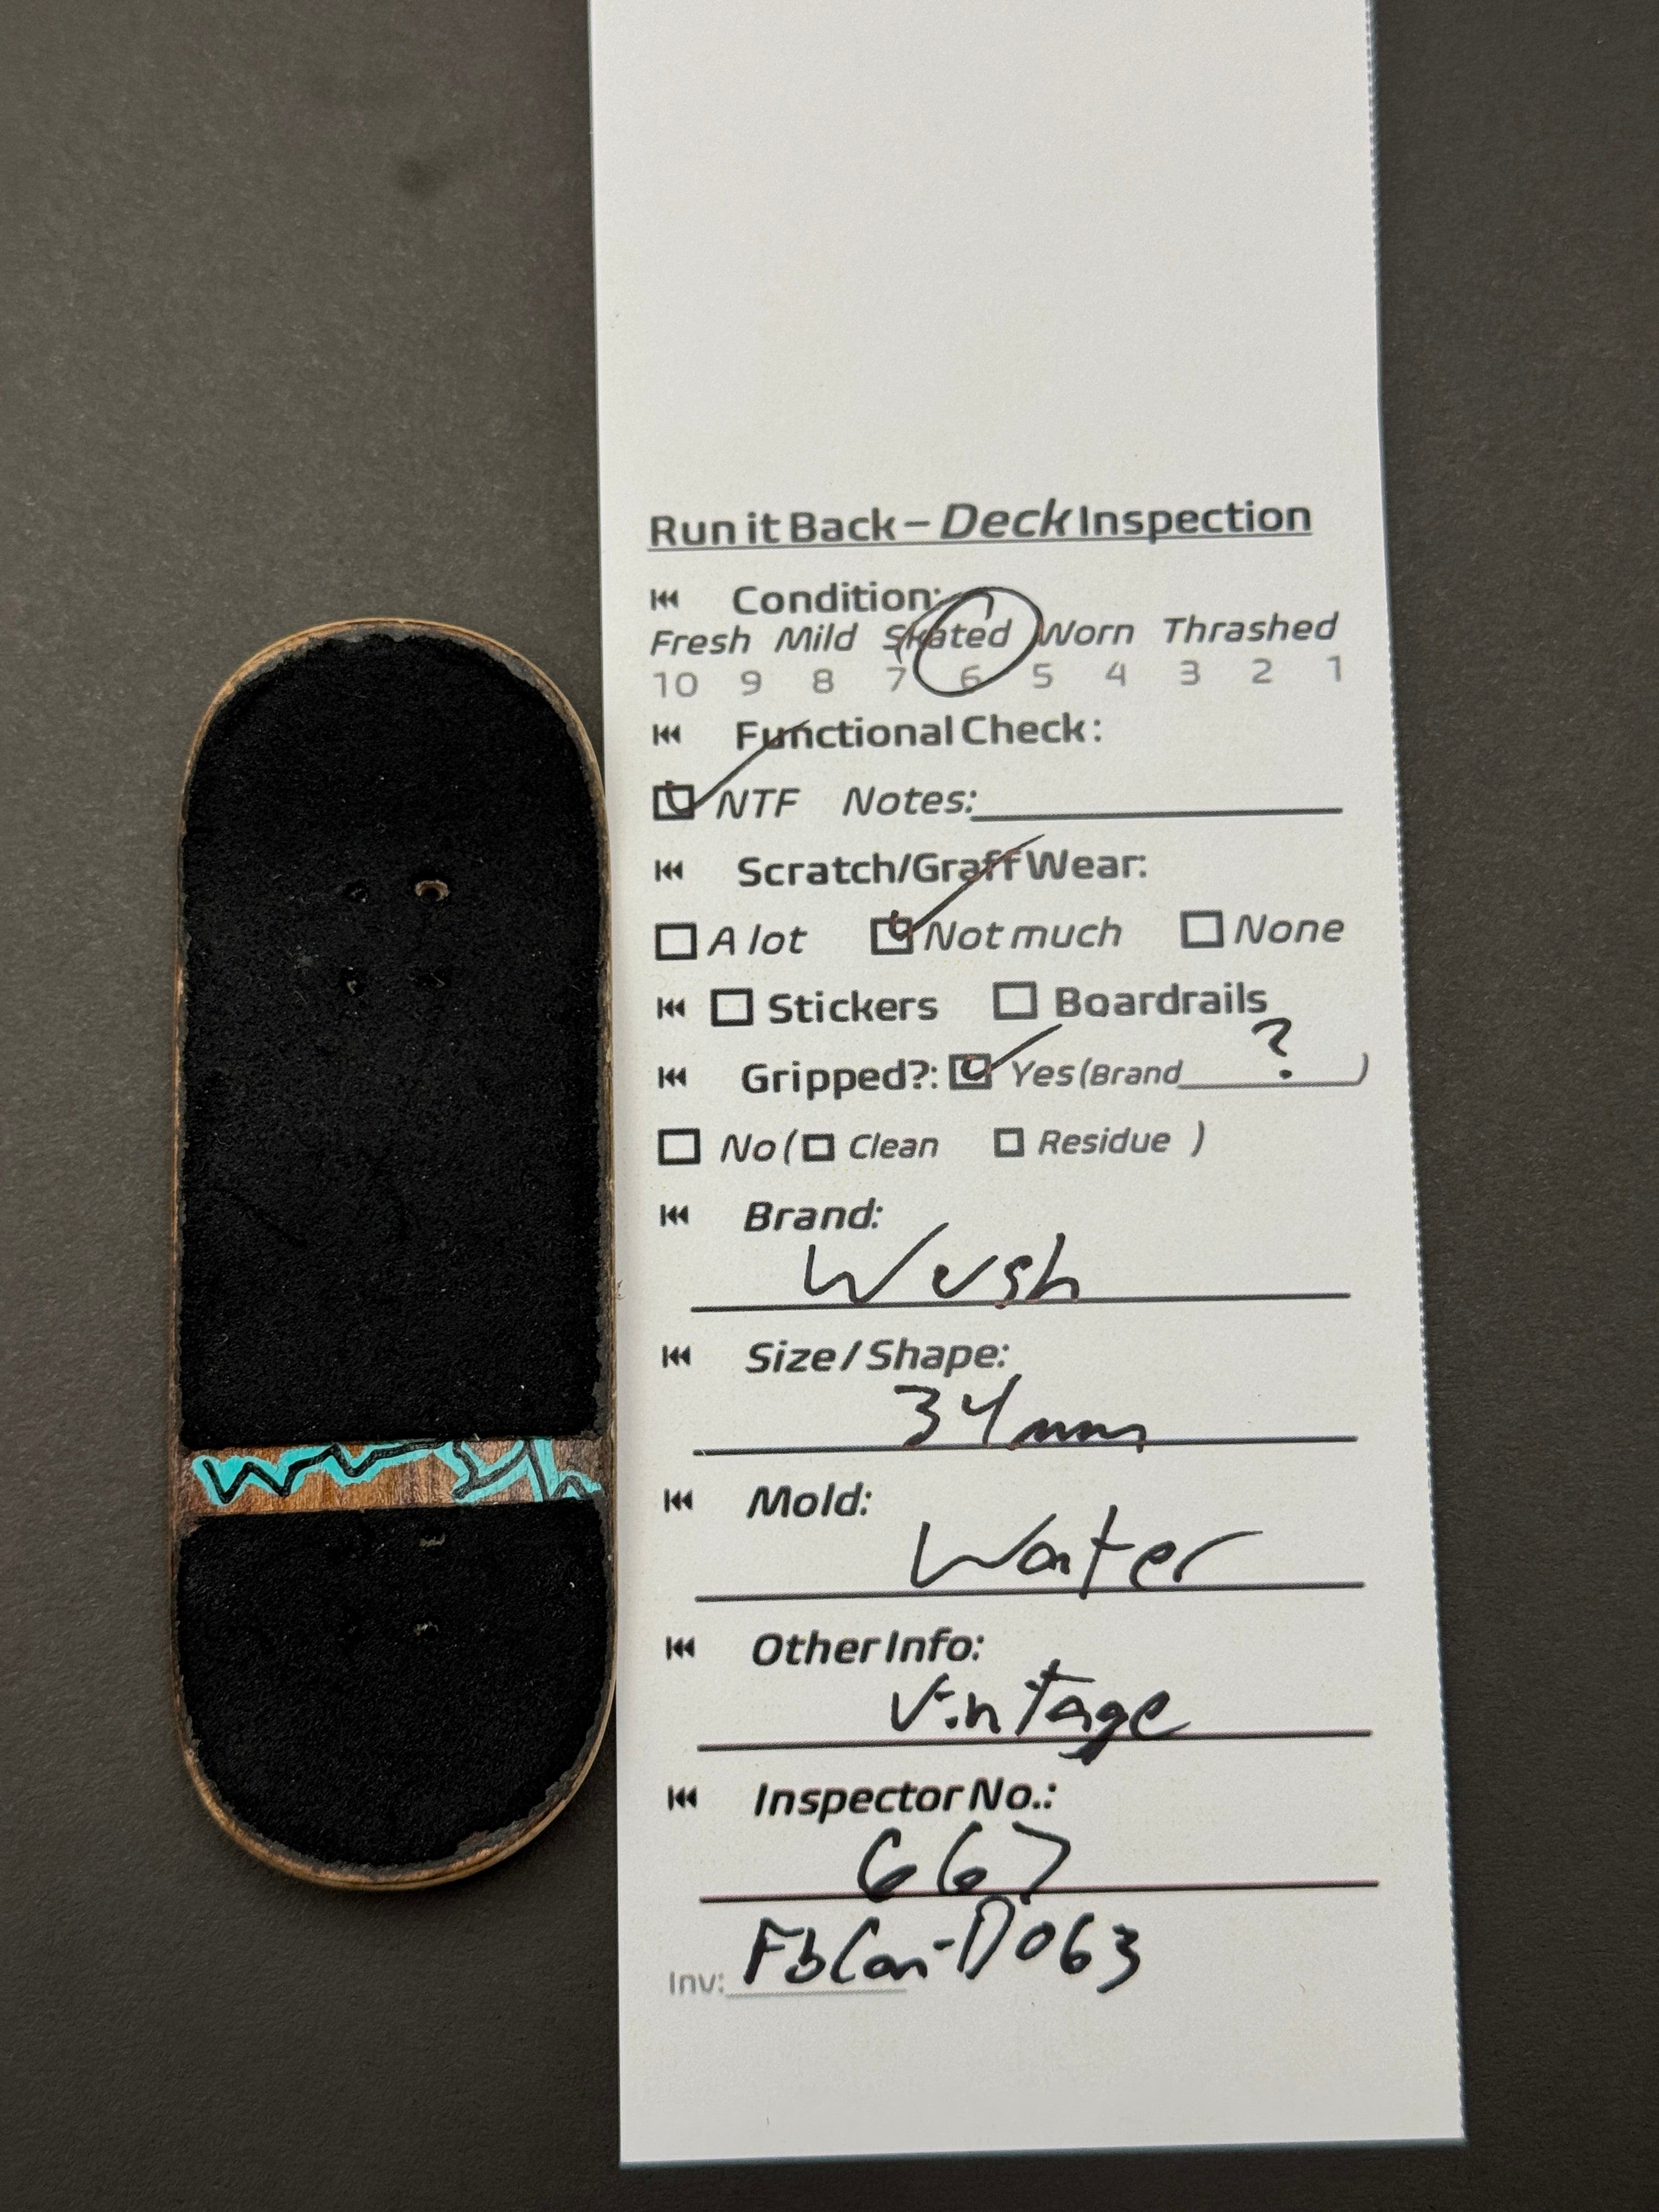 Run it Back – Deck Inspection
Condition:
Fresh Mild Skated Worn Thrashed
10 9 8 7 6 5 4 3 2 1
Functional Check:
NTF Notes:
Scratch/Graff Wear:
A lot Not much None
Stickers Boardrails
Gripped?: Yes (Brand ? )
No ( Clean Residue )
Brand:
Wush
Size / Shape:
34mm
Mold:
Water
Other Info:
Vintage
Inspector No.:
667
Inv: FbCon-D063
wush